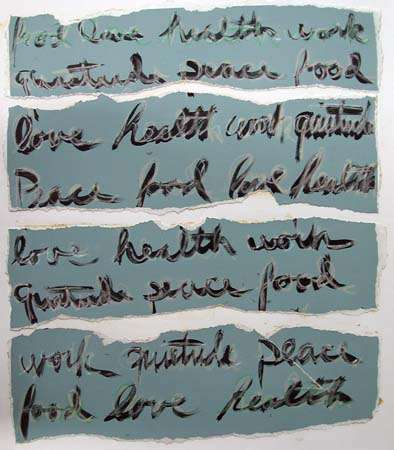 food love health work
quietude peace food
love health work quietude
Peace food love health
love health work
quietude peace food
work quietude peace
food love health